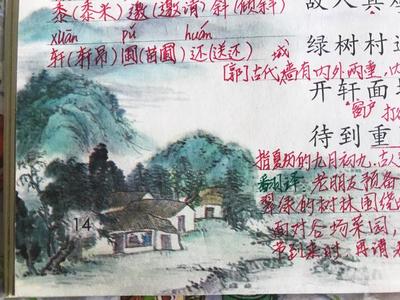 黍(黍米) 邀(邀请) 斜(倾斜)
xuān pǔ huán
轩(轩昂) 圃(苗圃) 还(送还)
故人具
绿树村
城
[郭]古代墙有内外两重，内
开轩面
窗户 打
待到重
指夏历的九月初九，古人
翻译：老朋友预备
翠绿的树林围绕
面对谷场菜园，
节到来时，再请
14